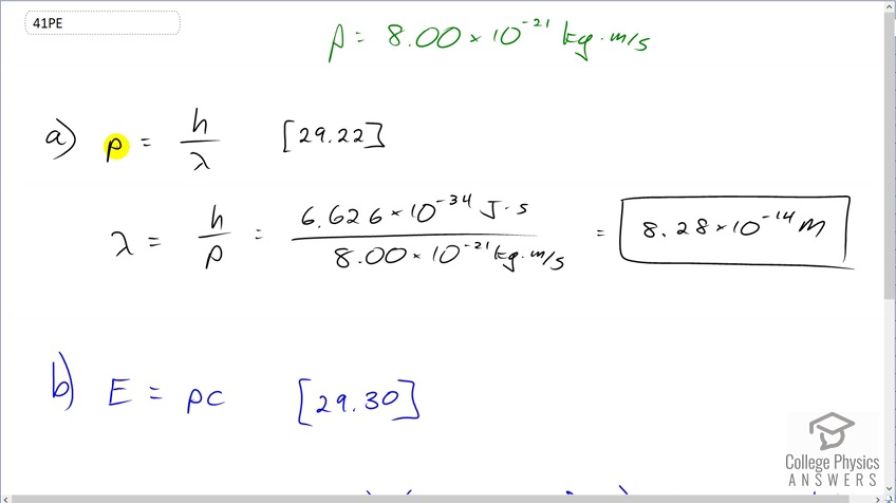 41PE
p = 8.00 × 10⁻²¹ kg·m/s
a) p = h/λ [29.22]
λ = h/p = 6.626 × 10⁻³⁴ J·s / 8.00 × 10⁻²¹ kg·m/s = 8.28 × 10⁻¹⁴ m
b) E = pc [29.30]
College Physics
ANSWERS